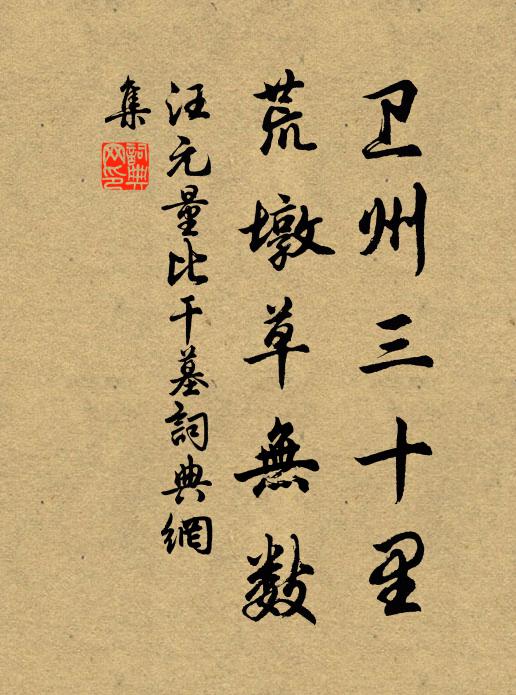 卫州三十里
荒墩草無数
汪元量比干墓詞典網
集
詞典
网印